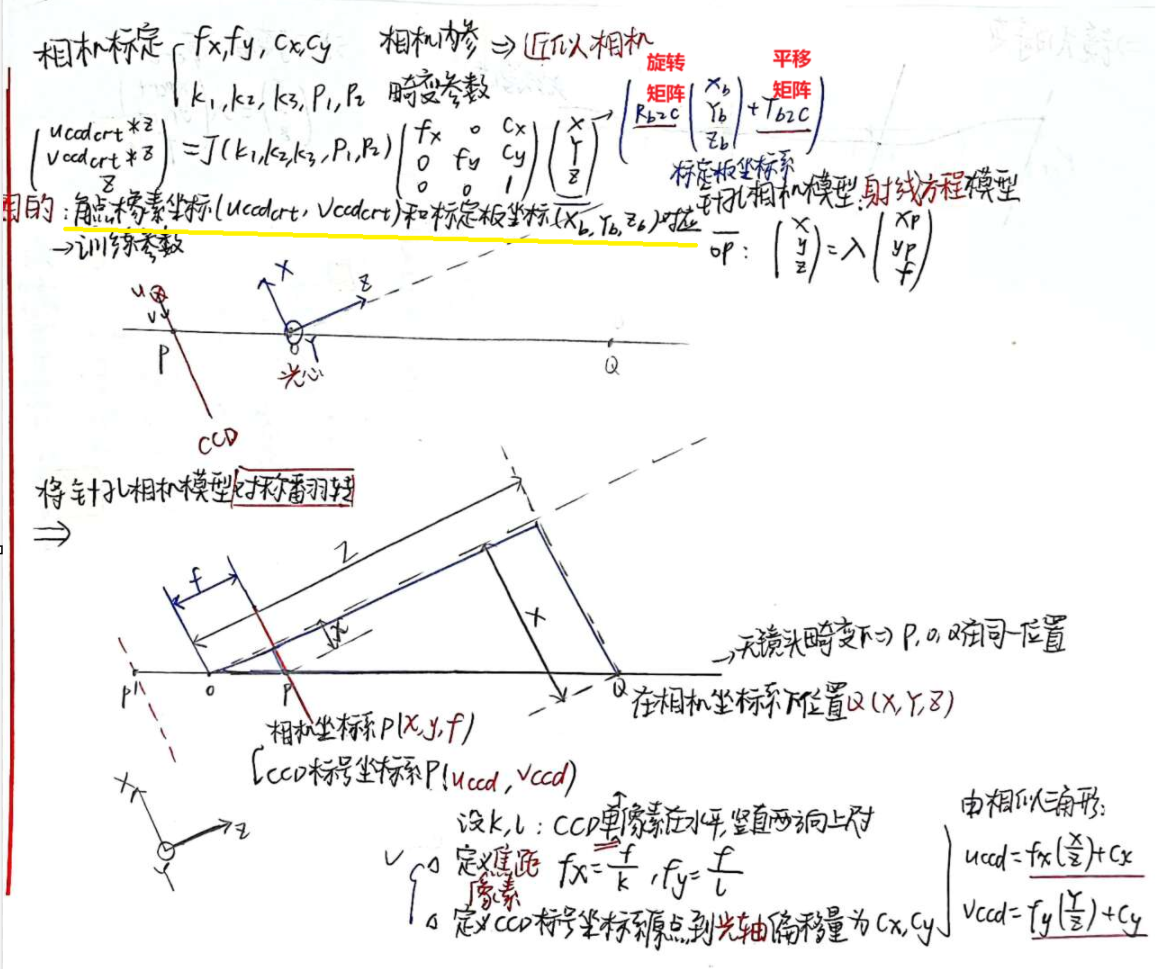 相机标定 { fx,fy, cx,cy 相机内参 ⇒ 近似相机
k1,k2,k3,P1,P2 畸变参数
旋转矩阵 平移矩阵
(uccdcrt*z
vccdcrt*z
z) = J(k1,k2,k3,P1,P2) (fx 0 cx
0 fy cy
0 0 1) (X
Y
Z) → (Rb2c (Xb
Yb
Zb) + Tb2c)
标定板坐标系
目的：角点像素坐标(uccdcrt, vccdcrt)和标定板坐标(Xb,Yb,Zb)对应
→训练参数
针孔相机模型：射线方程模型
OP： (x
y
z) = λ (xp
yp
f)
u
v
P
X
Z
O
Y
光心
Q
CCD
将针孔相机模型对称翻转
⇒
f
Z
x
X
P'
O
P
Q
→无镜头畸变下⇒P,O,Q在同一位置
在相机坐标系下位置Q(X,Y,Z)
相机坐标系P(x,y,f)
CCD标号坐标系P(uccd,vccd)
X
Z
Y
设k,l：CCD单像素在水平,竖直两方向上尺寸
定义焦距 fx=f/k , fy=f/l
像素
定义CCD标号坐标系原点到光轴偏移量为Cx,Cy
由相似三角形:
uccd=fx(X/Z)+Cx
vccd=fy(Y/Z)+Cy